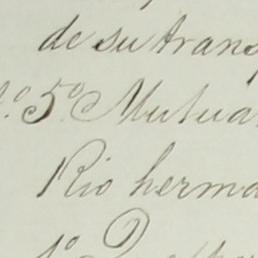 de su trans
5º Mutua
Rio herma